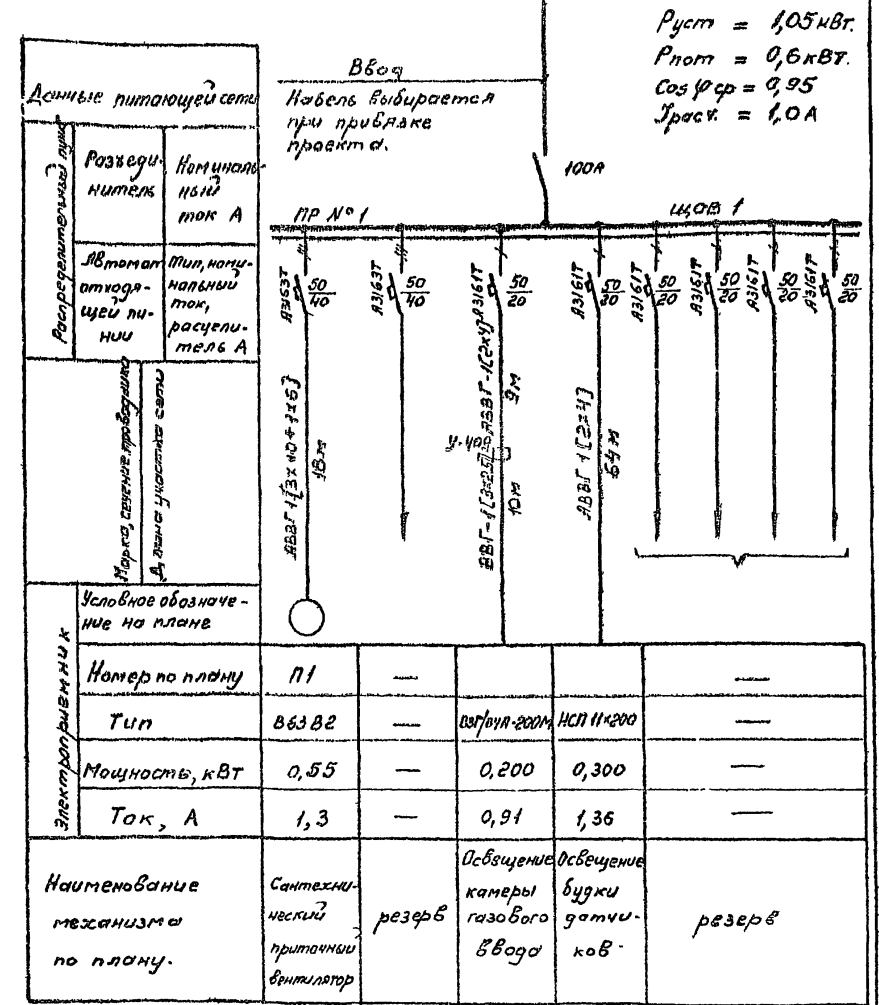 Руст = 1,05 кВт.
Рпот = 0,6 кВт.
Cos φ ср = 0,95
Iрасч. = 1,0 А
Ввод
Кабель выбирается
при привязке
проекта.
100А
ПР № 1
ЩОВ 1
Данные питающей сети
Распределительный пункт
Разъеди-
нитель
Номиналь-
ный
ток А
Автомат
отходя-
щей ли-
нии
Тип, номи-
нальный
ток,
расцепи-
тель А
А3163Т 50/40
А3163Т 50/40
А3161Т 50/20
А3161Т 50/30
А3161Т 50/20
А3161Т 50/20
А3161Т 50/20
А3161Т 50/20
Марка, сечение проводника
Длина участка сети
АВВГ-1[3×10+1×6]
18м
АВВГ-1[2×4]
9м
ВВГ-1[3×2,5]
10м
АВВГ-1[2×4]
64м
Электроприемник
Условное обозначе-
ние на плане
Номер по плану П1 — —
Тип В63В2 — НСП 11×200 —
Мощность, кВт 0,55 — 0,200 0,300 —
Ток, А 1,3 — 0,91 1,36 —
Наименование
механизма
по плану.
Сантехни-
ческий
приточный
вентилятор
резерв
Освещение
камеры
газового
ввода
Освещение
будки
датчи-
ков
резерв